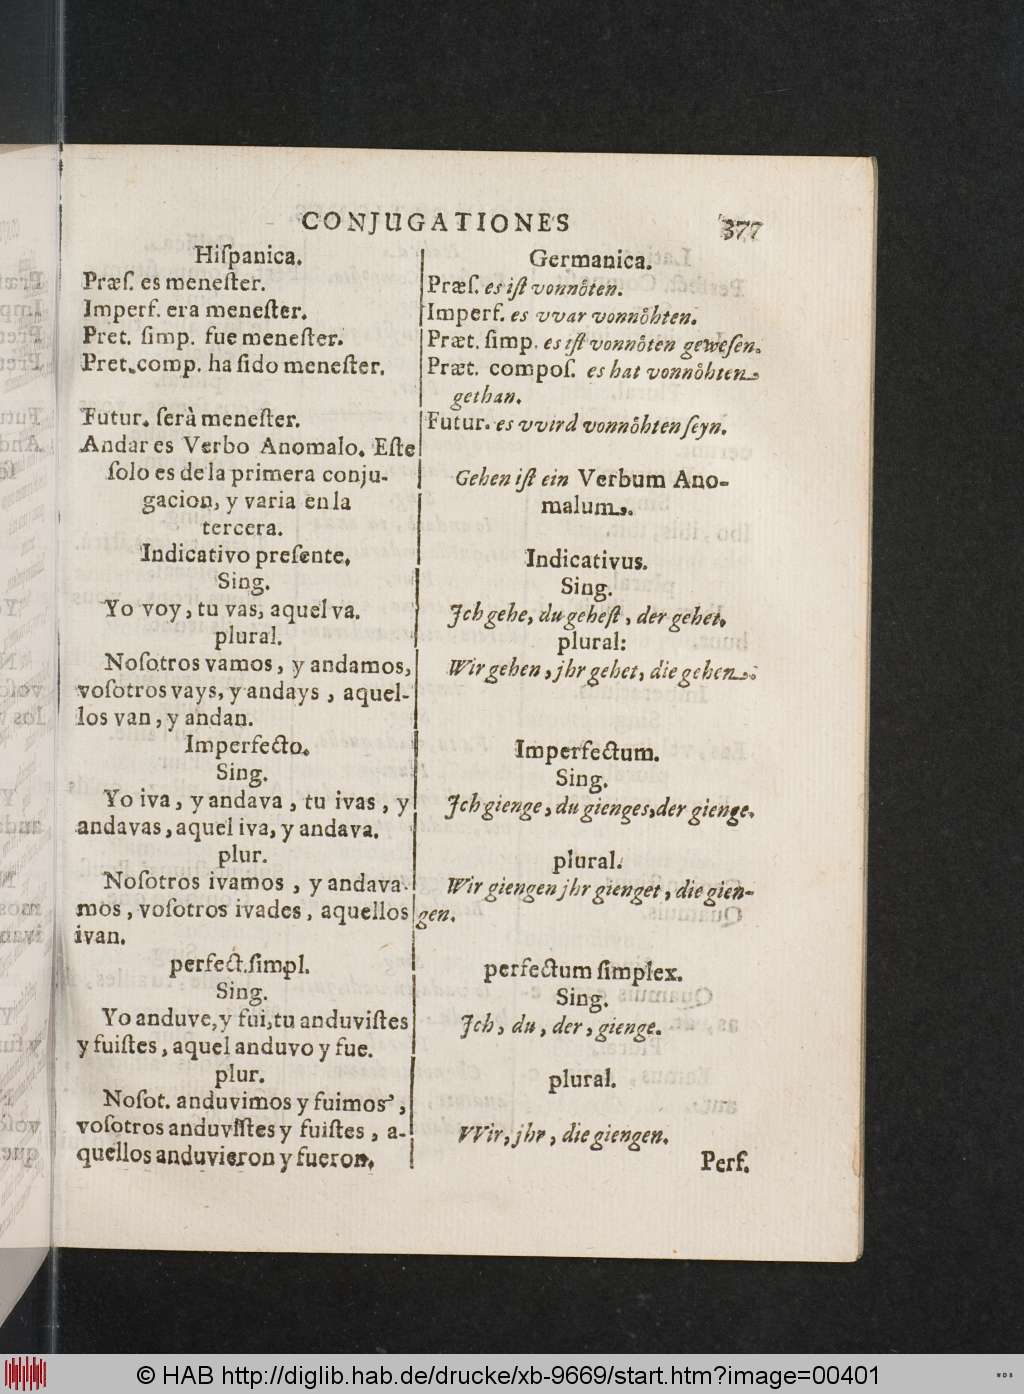 CONJUGATIONES 377
Hiſpanica.
Præſ. es meneſter.
Imperf. era meneſter.
Pret. ſimp. fue meneſter.
Pret. comp. ha ſido meneſter.
Futur. ſerà meneſter.
Andar es Verbo Anomalo. Eſte
ſolo es de la primera conju-
gacion, y varia en la
tercera.
Indicativo preſente.
Sing.
Yo voy, tu vas, aquel va.
plural.
Noſotros vamos, y andamos,
voſotros vays, y andays, aquel-
los van, y andan.
Imperfecto.
Sing.
Yo iva, y andava, tu ivas, y
andavas, aquel iva, y andava.
plur.
Noſotros ivamos, y andava-
mos, voſotros ivades, aquellos
ivan.
perfect. ſimpl.
Sing.
Yo anduve, y fui, tu anduviſtes
y fuiſtes, aquel anduvo y fue.
plur.
Noſot. anduvimos y fuimos,
voſotros anduviſtes y fuiſtes, a-
quellos anduvieron y fueron.
Germanica.
Præſ. es iſt vonnoͤten.
Imperf. es vvar vonnoͤhten.
Præt. ſimp. es iſt vonnoͤten geweſen.
Præt. compoſ. es hat vonnoͤhten
gethan.
Futur. es vvird vonnoͤhten ſeyn.
Gehen iſt ein Verbum Ano-
malum.
Indicativus.
Sing.
Jch gehe, du geheſt, der gehet.
plural:
Wir gehen, jhr gehet, die gehen.
Imperfectum.
Sing.
Jch gienge, du gienges, der gienge.
plural.
Wir giengen jhr gienget, die gien-
gen.
perfectum ſimplex.
Sing.
Jch, du, der, gienge.
plural.
VVir, jhr, die giengen.
Perf.
© HAB http://diglib.hab.de/drucke/xb-9669/start.htm?image=00401